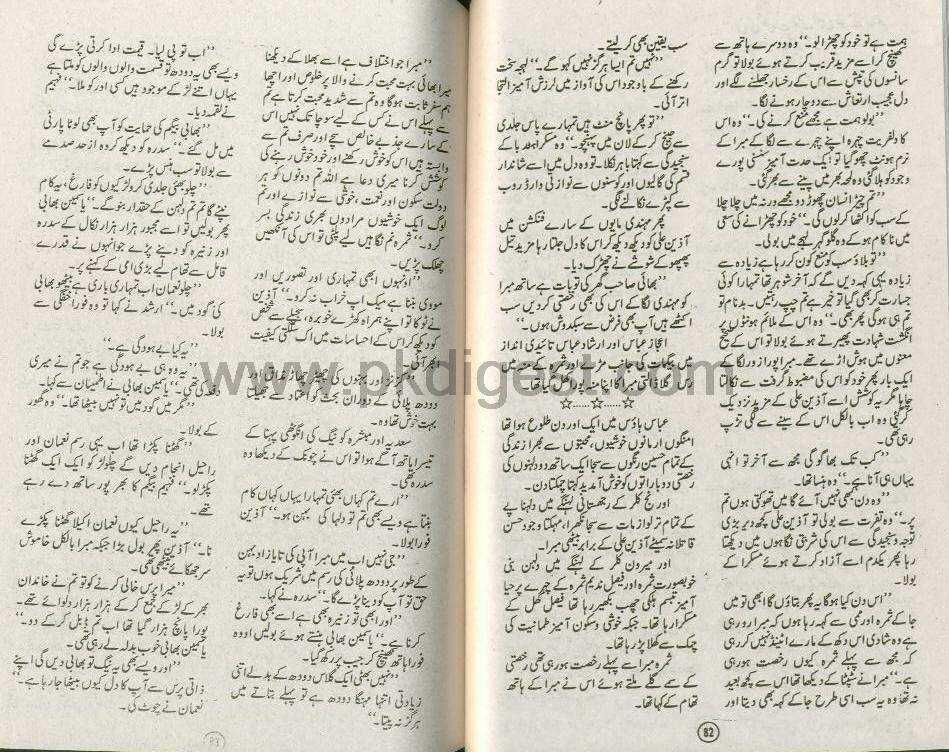 ہمت ہے تو خود کو چھڑا لو۔“ وہ دوسرے ہاتھ سے
کھینچ کر اسے مزید قریب کرتے ہوئے بولا تو گرم
سانسوں کی تپش سے اس کے رخسار جھلسنے لگے اور
دل عجیب ارتعاش سے دوچار ہونے لگا۔
”بولو ہمت ہے مجھے منع کرنے کی۔“ وہ اس
کا دلفریب چہرہ اپنے چہرے سے لگا کے مبرا کے
نرم ہونٹ چھو گیا تو ایک حدت آمیز سنسنی پورے
وجود کو ہلا گئی وہ لمحہ بھر میں پسینے سے بھر گئی۔
”تم چیز انسان چھوڑ دو مجھے ورنہ میں چلا چلا
کے سب کو اکٹھا کر لوں گی۔“ خود کو چھڑانے کی سعی
میں ناکام ہو کے وہ گلوگیر لہجے میں بولی۔
”تو بلاؤ سب کو منع کون کر رہا ہے زیادہ سے
زیادہ یہی کہہ دیں گے کہ آخر شوہر تھا تمہارا کوئی
جسارت کر بھی گیا تو خیر ہے تم چپ رہتیں۔ بدنام تو
تم ہی ہو گی پھر بھی۔“ وہ اس کے ملائم ہونٹوں پر
انگشت شہادت پھیرتے ہوئے بولا تو اس کے
معنوں میں ہوش اڑے تھے۔ مبرا پورا زور لگا کے
ایک بار پھر خود کو اس کی مضبوط گرفت سے نکالنا
چاہا مگر یہ کوشش اسے آذین علی کے مزید نزدیک
کر گئی وہ اب بالکل اس کے سینے سے لگی تڑپ
رہی تھی۔
”کب تک بھاگو گی مجھ سے آخر تو انہی
بانہوں میں ہی آنا ہے۔“ وہ ہنسا۔
”وہ دن کبھی نہیں آئے گا میں تھوکتی ہوں تم
پر۔“ وہ نفرت سے بولی تو آذین علی کچھ دیر بڑی
توجہ و سنجیدگی سے اس کی شربتی نگاہوں میں دیکھتا
رہا پھر یکدم اسے آزاد کرتے ہوئے مسکرا کے
بولا۔
”اس دن کیا ہو گا یہ پھر بتاؤں گا ابھی تو میں
جا کے ثمرہ اور ممی سے کہہ رہا ہوں کہ مبرا رو رہی
ہے وہ شادی اس دکھ کے مارے اٹینڈ نہیں کر رہی
کہ مجھ سے پہلے ثمرہ کیوں رخصت ہو رہی
ہے۔“ مبرا نے سٹپٹا کے دیکھا تھا اس سے کچھ بعید
نہ تھا وہ یہ سب اسی طرح جا کے کہہ بھی دیتا اور
سب یقین بھی کر لیتے۔
”نہیں تم ایسا ہرگز نہیں کہو گے۔“ لہجہ سخت
رکھنے کے باوجود اس کی آواز میں لرزش آمیز التجا
اتر آئی۔
”تو پھر پانچ منٹ ہیں تمہارے پاس جلدی
سے چینج کر کے لان میں پہنچو۔“ وہ مسکراہٹ دبا کے
سنجیدگی سے کہتا باہر نکلا۔ تو وہ دل میں اسے شاندار
قسم کی گالیوں اور کوسنوں سے نوازتی وارڈ روب
سے کپڑے نکالنے لگی۔
پھر مہندی مایوں کے سارے فنکشن میں
آذین علی کو دیکھ دیکھ کر اس کا دل جلتا رہا مزید تیل
پھپھو کے شوشے نے چھڑک دیا۔
”بھائی صاحب گھر کی تو بات ہے ساتھ مبرا
کو مہندی لگا کے اس کی بھی رخصتی کر دیں سب
اکٹھے ہیں آپ بھی فرض سے سبکدوش ہوں۔“
اعجاز عباس اور ارشاد عباس تائیدی انداز
میں بیگمات کی جانب مڑے اور شور کے میں
رس گلہ ڈالتی مبرا کا اپنا منہ پورا کھل گیا تھا۔
☆......☆......☆
عباس ہاؤس میں ایک اور دن طلوع ہوا تھا
امنگوں ارمانوں خوشیوں، محبتوں سے بھرا زندگی
کے تمام حسین رنگوں سے سجا ایک ساتھ دو دلہنوں کی
رخصتی دو باراتوں کو خوش آمدید کہتا چمکتا دن۔
اورنج کلر کے راجستھانی لہنگے میں دلہناپے
کے تمام تر لوازمات سے سجا نکھرا، مہکتا وجود حسن
قاتلانہ سمیٹے آذین علی کے برابر بیٹھی مبرا۔
اور میرون کلر کے لہنگے میں دلہن بنی
خوبصورت ثمرہ اور فیصل ندیم ثمرہ کے چہرے پر حیا
آمیز تبسم ہلکی سی چھب بکھیر رہا تھا فیصل کھل کے
مسکرا رہا تھا۔ جبکہ خوشی و سکون آمیز طمانیت کی
چمک سے کھلا پڑ رہا تھا۔
ثمرہ مبرا سے پہلے رخصت ہو رہی تھی رخصتی
کے سمے گلے ملتے ہوئے اس نے مبرا کے ہاتھ
تھام کے کہا تھا۔
82
”میرا جو اختلاف ہے اسے بھلا کے دیکھنا
میرا بھائی بہت محبت کرنے والا پرخلوص اور اچھا
ہم سفر ثابت ہو گا وہ تم سے شدید محبت کرتا ہے تم
سے پہلے اس نے کسی کے لیے سوچا تک نہیں اس
کے سارے جذبے خالص سچے اور صرف تم سے
وابستہ ہیں اس کو خوش رکھنے اور خود خوش رہنے کی
کوشش کرنا میری دعا ہے اللہ تم دونوں کو ہر
دولت سکون اور نعمت، خوشی سے نوازے اور تم
لوگ ایک خوشیوں مرادوں بھری زندگی بسر
کرو۔“ ثمرہ نم نگاہیں لیے پلٹی تو اس کی آنکھیں
چھلک پڑیں۔
”اونہوں ابھی تمہاری اور تصویریں اور
مووی بننا ہے میک اپ خراب نہ کرو۔“ آذین
نے ٹوکا تو اپنے ہمراہ کھڑے خوبرو، سجیلے سے شخص
کو دیکھ کر اس کے احساسات میں اک سلگتی کیفیت
ابھر آئی۔
پھر کزنز اور بہنوں کی چھیڑ چھاڑ مذاق اور
دودھ پلائی کے دوران بحث کو اعتماد سے جھیلتا
بہت خوش تھا وہ۔
سعدیہ اور مبشرہ کو نیگ کی انگوٹھی پہنا کے
تیسرا ہاتھ آگے ہوا تو اس نے چونک کے دیکھا وہ
سدرہ تھی۔
”ارے تم کہاں بھئی تمہارا یہاں کہاں کام
بنتا ہے ویسے بھی تم تو دلہا کی بہن ہو۔“ آذین
فوراً بولا۔
”جی نہیں اب میں مبرا آپی کی تایا زاد بہن
کے طور پر دودھ پلائی کی رسم میں شریک ہوں تو یہ
حق تو آپ کو دینا پڑے گا۔“ سدرہ نے کہا۔
”اور ابھی تو زنیرہ بھی ہے اسے بھی فارغ
کرنا ہے۔“ یاسمین بھابی ہنستے ہوئے بولیں اووہ
فوراً ہاتھ کھینچ کر جیب پر رکھ گیا۔
”نہیں بھئی ایک گلاس دودھ کے بدلے اتنی
زیادتی انتہا مہنگا دودھ ہے تو پہلے بتاتے میں
ہرگز نہ پیتا۔“
”اب تو پی لیا۔ قیمت ادا کرنی پڑے گی
ویسے بھی یہ دودھ تو قسمت والوں والوں کو ملتا ہے
یہاں اتنے لڑکے موجود ہیں کسی اور کو ملا۔“ فہیم
نے لقمہ دیا۔
”بھابی بیگم کی حمایت کو آپ بھی لوٹا پارٹی
میں مل گئے۔“ سدرہ کو دیکھ کر وہ ازحد صدمے
سے بولا تو سب ہنس پڑے۔
”چلو بھئی جلدی کرو لڑکیوں کو فارغ، یہ کام
نپٹے گا تم تم دلہن کے حقدار بنو گے۔“ یاسمین بھابی
پھر بولیں تو اسے مجبوراً ہزار ہزار نکال کے سدرہ
اور زنیرہ کو دینے پڑے جو انہوں نے قدرے
قائل سے تھام لیے بڑی امی کے کہنے پر۔
”چلو نعمان اب تمہاری باری ہے بیٹھو بھابی
کی گود میں۔“ ارشد نے کہا تو وہ فوراً خفگی سے
بولا۔
”یہ کیا بے ہودگی ہے۔“
”یہ وہی بے ہودگی ہے جو تم نے میری
دفعہ کی تھی۔“ یاسمین بھابی نے اطمینان سے کہا۔
”مگر میں گود میں تو نہیں بیٹھا تھا۔“ وہ گھور
کے بولا۔
”گھٹنا پکڑا تھا اب یہی رسم نعمان اور
راحیل انجام دیں گے چلو لڑکو ایک ایک گھٹنا
پکڑ لو۔“ فہیم بیگم کا بھرپور ساتھ دے رہے
تھے۔
”یہ راحیل کیوں نعمان اکیلا گھٹنا پکڑے
نا۔“ آذین پھر بول پڑا جبکہ مبرا بالکل خاموش
سر جھکائے بیٹھی تھی۔
”میرا پرس خالی کرنے کو تو تم نے خاندان
بھر کے لڑکے جمع کر کے ہزار ہزار دلوائے تھے۔
پورا پانچ ہزار گیا تھا اب تم ڈبل کر کے دو۔“
یاسمین بھابی خوب بدلہ لے رہی تھی۔
”اور ویسے بھی یہ نیگ تو بھابی دیں گی اپنے
ذاتی پرس سے آپ کا دل کیوں بیٹھا جا رہا ہے۔“
نعمان نے چوٹ کی۔
83
www.pkdigest.com